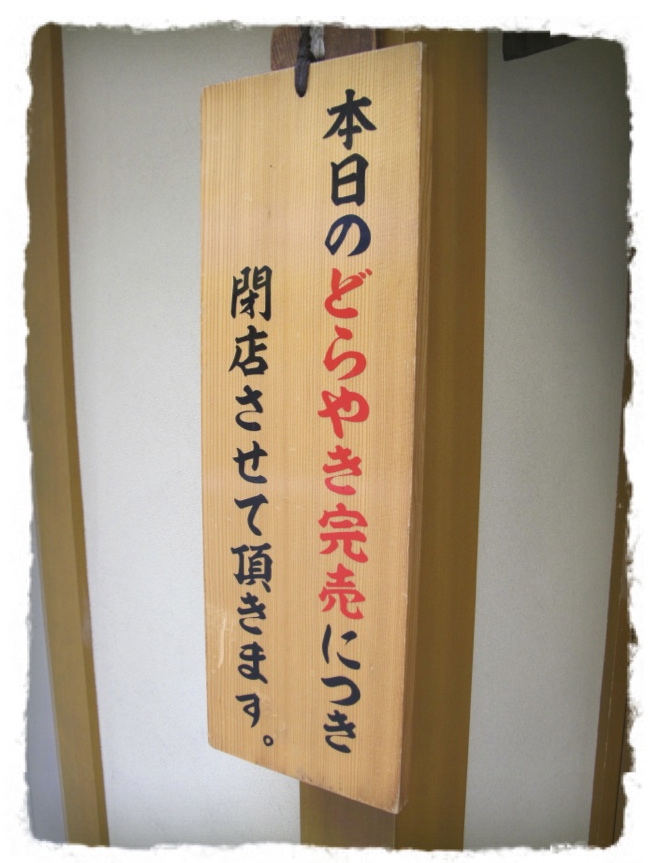 本日のどらやき完売につき
閉店させて頂きます。